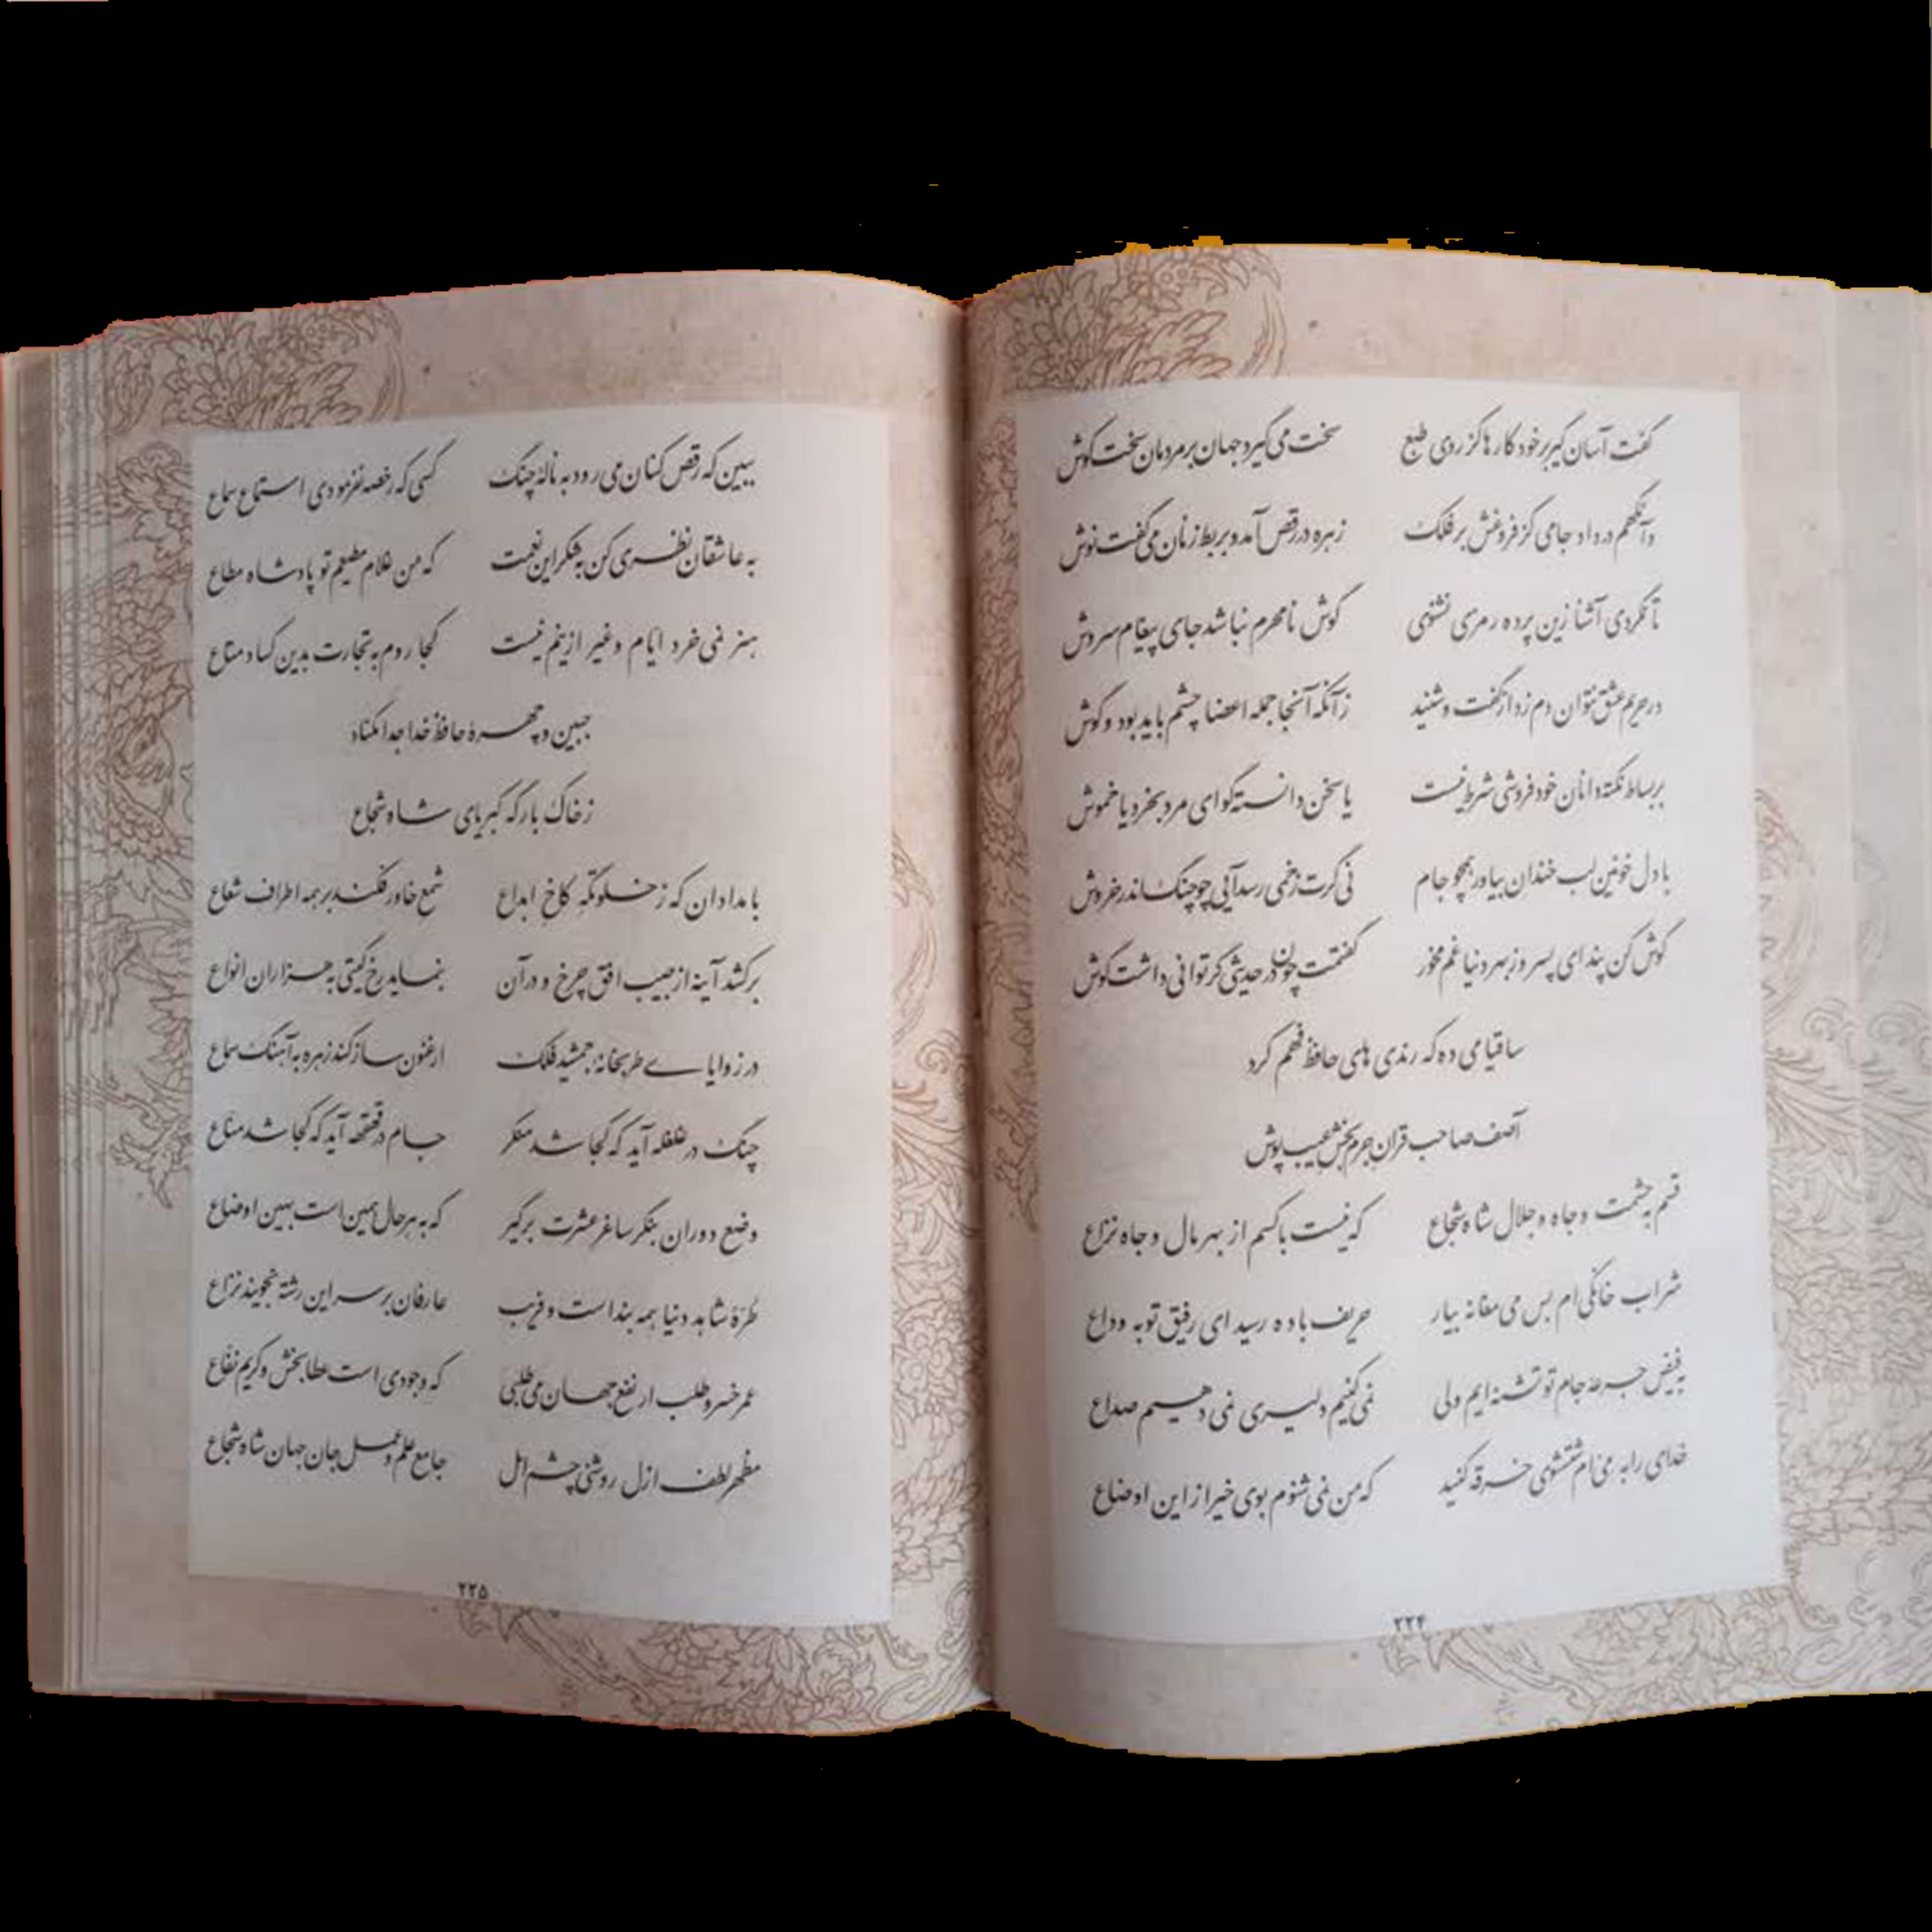 گفت آسان گیر بر خود کارها کز روی طبع سخت می‌گیرد جهان بر مردمان سخت کوش
وآنگهم در داد جامی کز فروغش بر فلک زهره در رقص آمد و بربط زنان می‌گفت نوش
تا نگردی آشنا زین پرده رمزی نشنوی گوش نامحرم نباشد جای پیغام سروش
در حریم عشق نتوان دم زد از گفت و شنید زآنکه آنجا جمله اعضا چشم باید بود و گوش
بر بساط نکته دانان خودفروشی شرط نیست یا سخن دانسته گو ای مرد بخرد یا خموش
با دل خونین لب خندان بیاور همچو جام نی گرت زخمی رسد آیی چو چنگ اندر خروش
گوش کن پند ای پسر وز بهر دنیا غم مخور گفتمت چون در حدیثی گر توانی داشت گوش
ساقیا می ده که رندی های حافظ فهم کرد
آصف صاحب قران جرم بخش عیب پوش
قسم به حشمت و جاه و جلال شاه شجاع که نیست با کسم از بهر مال و جاه نزاع
شراب خانگی ام بس می مغانه بیار حریف باده رسید ای رفیق توبه وداع
به فیض جرعه جام تو تشنه ایم ولی نمی کنیم دلیری نمی دهیم صداع
خدای را به می ام شستشوی خرقه کنید که من نمی شنوم بوی خیر از این اوضاع
۲۲۴
ببین که رقص کنان می رود به ناله چنگ کسی که رخصه نفرمودی استماع سماع
به عاشقان نظری کن به شکر این نعمت که من غلام مطیعم تو پادشاه مطاع
هنر نمی خرد ایام و غیر ازینم نیست کجا روم به تجارت بدین کساد متاع
جبین و چهرهٔ حافظ خدا جدا مکناد
ز خاک بارگه کبریای شاه شجاع
بامدادان که ز خلوتگه کاخ ابداع شمع خاور فکند بر همه اطراف شعاع
برکشد آینه از جیب افق چرخ و در آن بنماید رخ گیتی به هزاران انواع
در زوایای طربخانهٔ جمشید فلک ارغنون ساز کند زهره به آهنگ سماع
چنگ در غلغله آید که کجا شد منکر جام در قهقهه آید که کجا شد مناع
وضع دوران بنگر ساغر عشرت برگیر که به هر حال همین است بهین اوضاع
طرّهٔ شاهد دنیا همه بند است و فریب عارفان بر سر این رشته نجویند نزاع
عمر خسرو طلب ار نفع جهان می طلبی که وجودی است عطابخش و کریم نفّاع
مظهر لطف ازل روشنی چشم امل جامع علم و عمل جان جهان شاه شجاع
۲۲۵